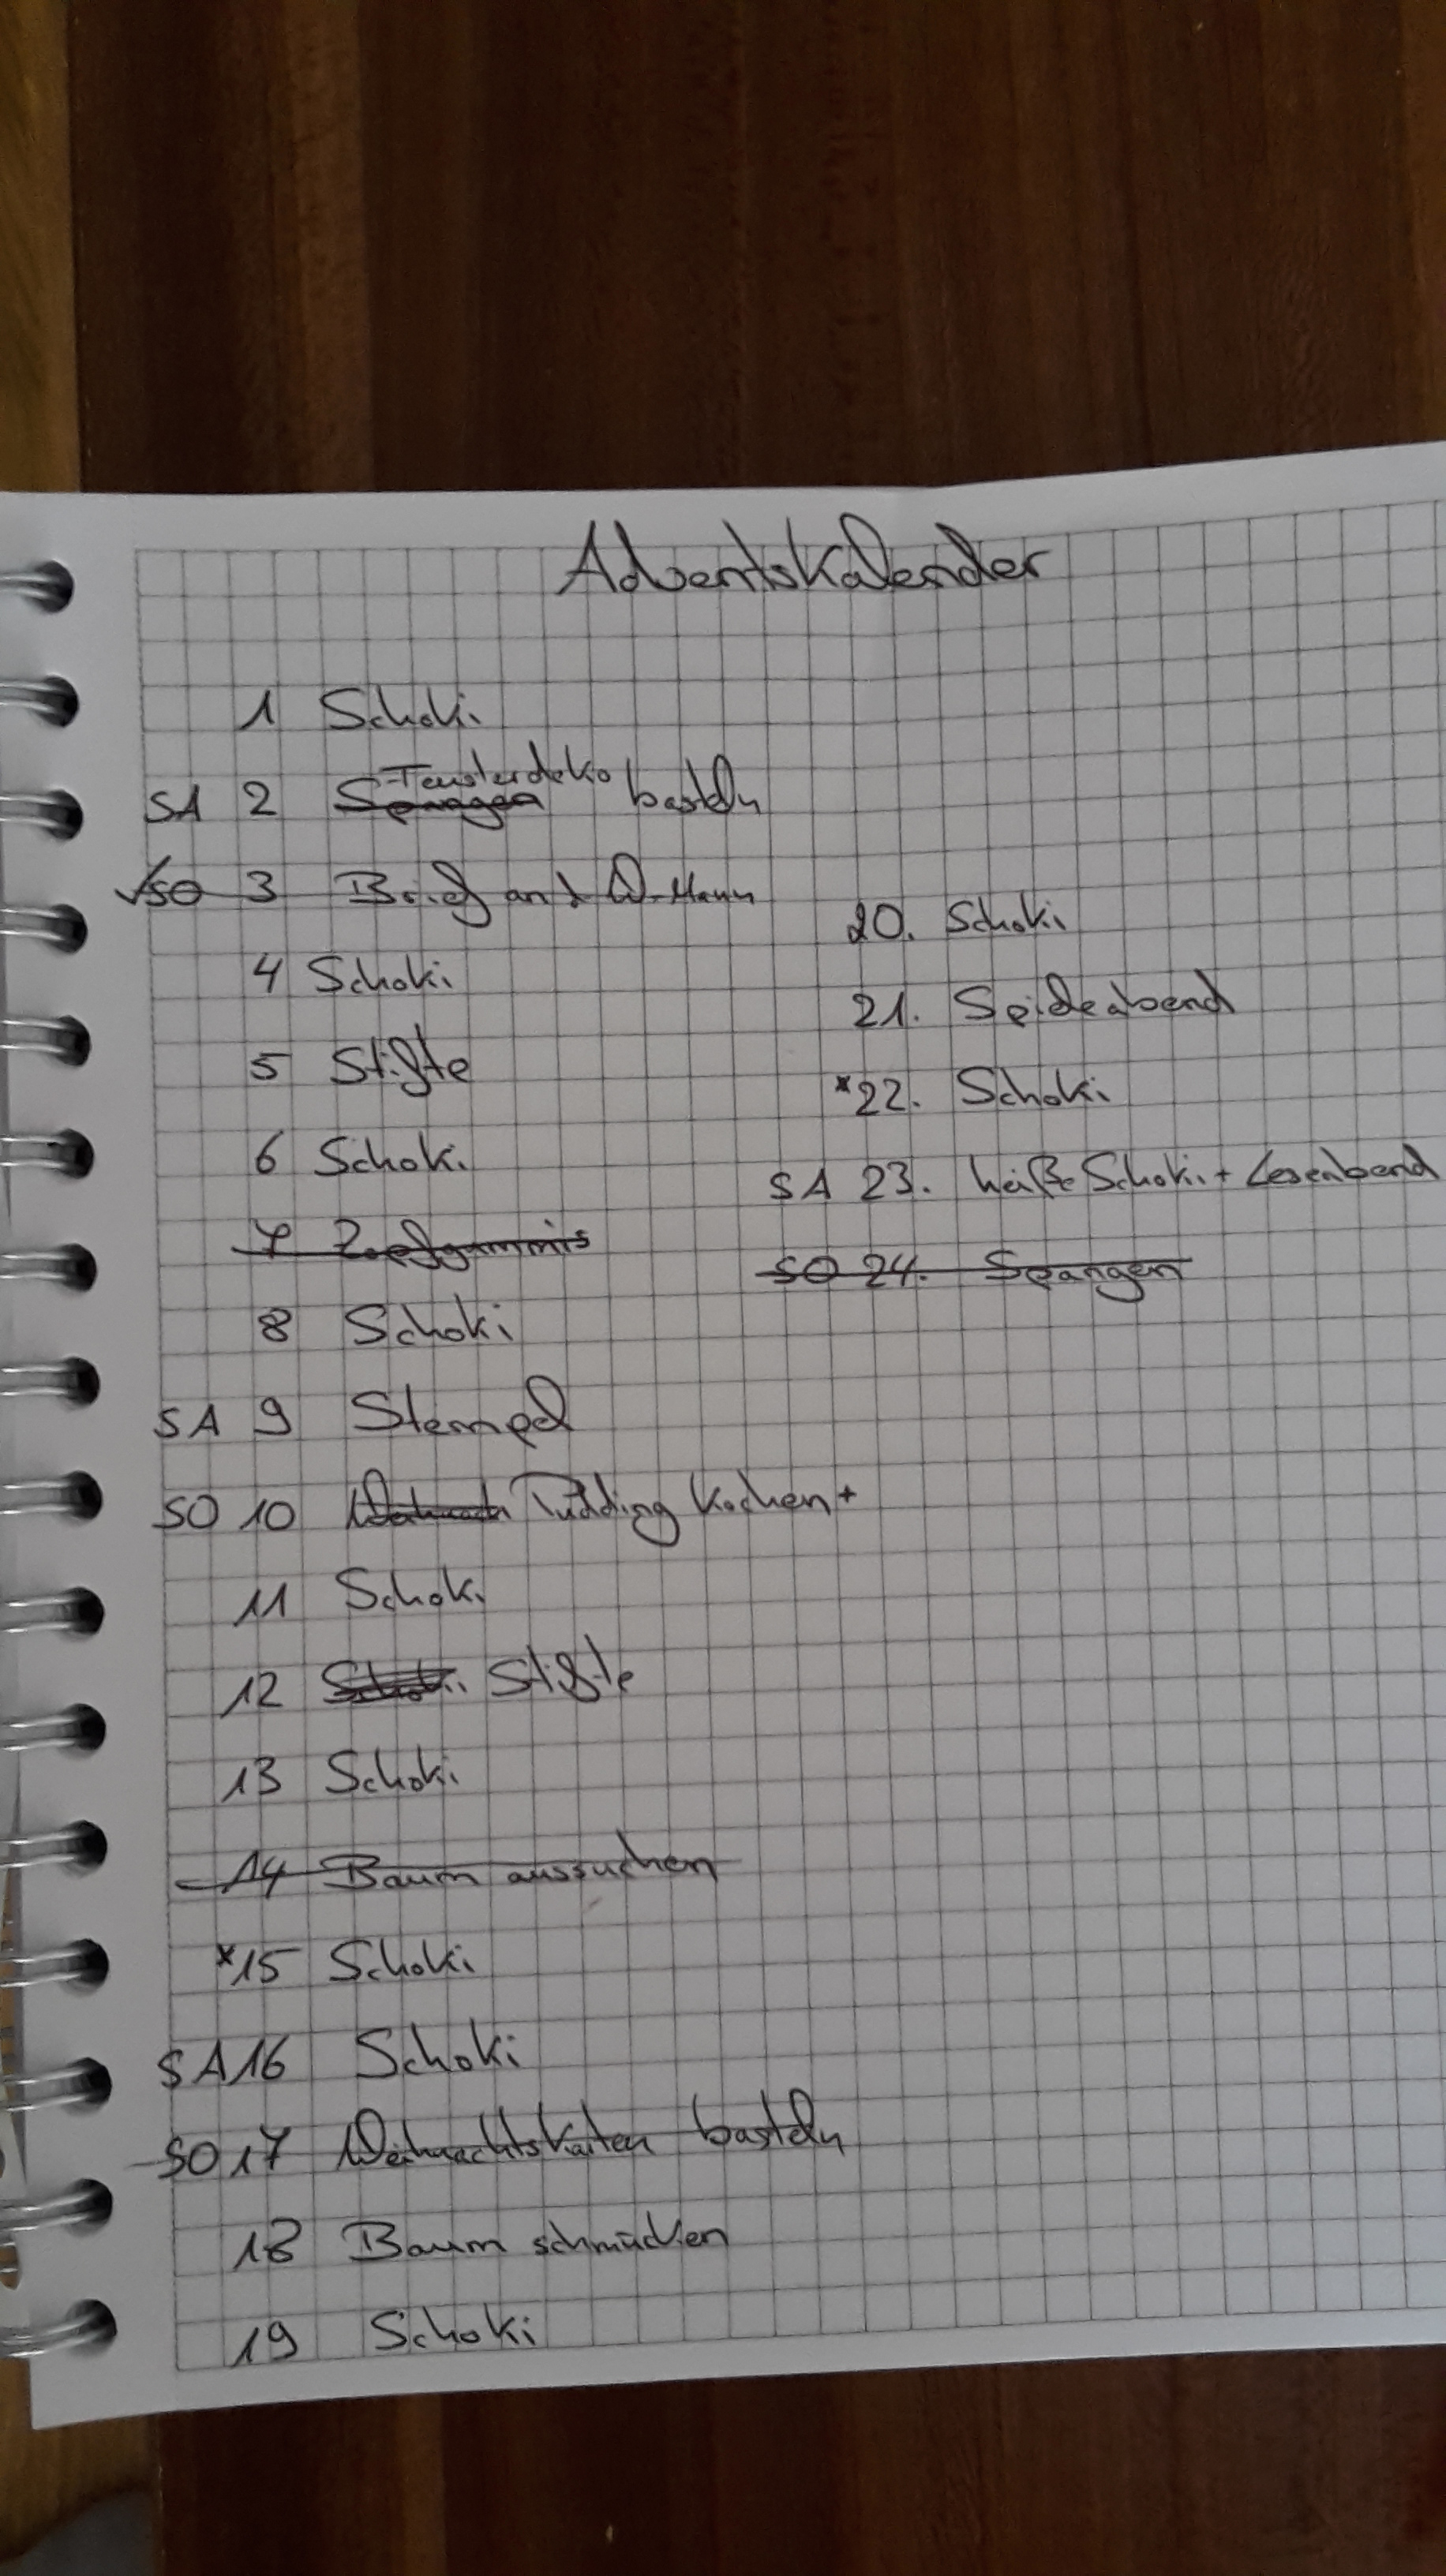 Adventskalender
1 Schoki
SA 2 Spangen Fensterdeko basteln
SO 3 Brief an d W-Mann
4 Schoki
5 Stifte
6 Schoki
7 Zopfgummis
8 Schoki
SA 9 Stempel
SO 10 Pudding kochen +
11 Schoki
12 Schoki Stifte
13 Schoki
14 Baum aussuchen
*15 Schoki
SA 16 Schoki
SO 17 Weihnachtskarten basteln
18 Baum schmücken
19 Schoki
20. Schoki
21. Spieleabend
*22. Schoki
SA 23. heiße Schoki + Leseabend
SO 24. Spangen